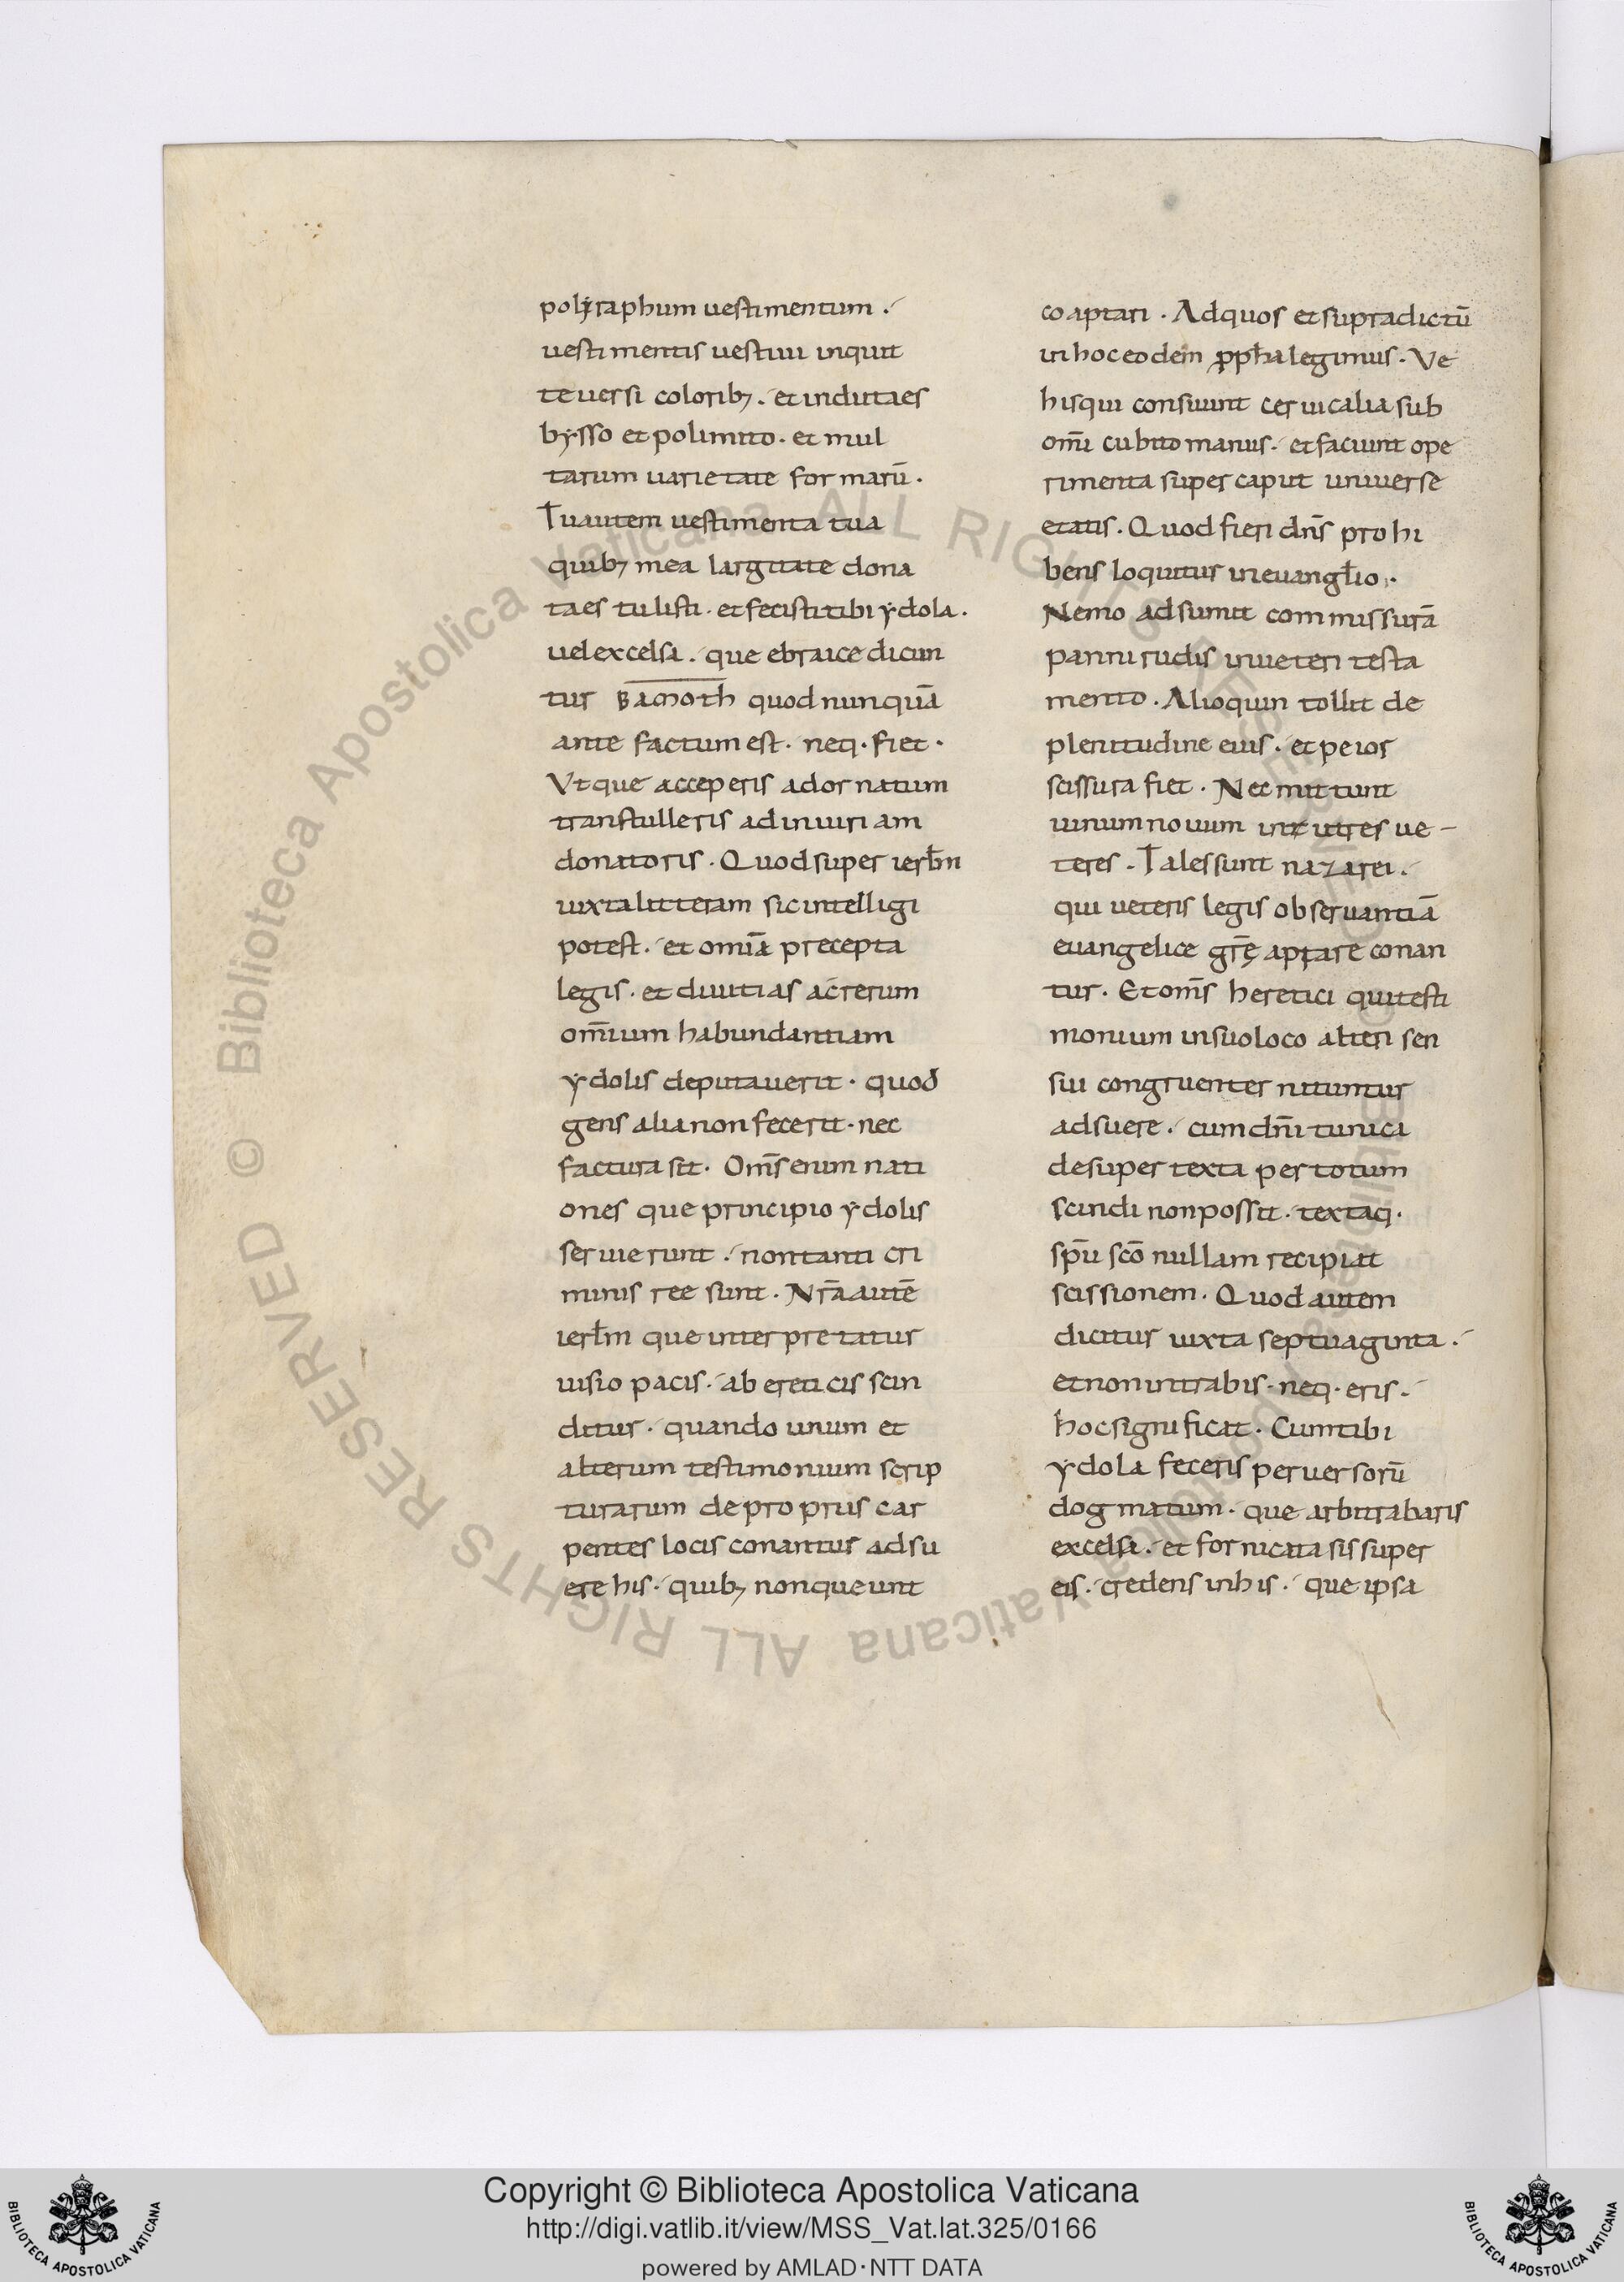 polyraphum uestimentum .
uestimentis uestiui inquit
te uersi coloribꝫ . et induta es
bysso et polimito . et mul
tarum uarietate formarū .
Tu autem uestimenta tua
quibꝫ mea largitate dona
ta es tulisti . et fecisti tibi ydola .
uel excelsa . que ebraice dicun
tur BAMOTH quod nunquā
ante factum est . neq . fiet .
Vt que acceperis ad ornatum
transtulleris ad iniuriam
donatoris . Quod super ierłm
iuxta litteram sic intelligi
potest . et omīa precepta
legis . et diuitias ac rerum
om̄ium habundantiam
ydolis deputauerit . quod
gens alia non fecerit . nec
factura sit . Om̄s enim nati
ones que principio ydolis
seruierunt . non tanti cri
minis ree sunt . Nr̄a autē
ierłm que interpretatur
uisio pacis . ab ereticis scin
ditur . quando unum et
alterum testimonium scrip
turarum de propriis car
pentes locis conantur adsu
ere his . quibꝫ non queunt
coaptari . Ad quos et supradictū
in hoc eodem ꝓpħa legimus . Ve
his qui consuunt ceruicalia sub
om̄i cubito manus . et faciunt ope
rimenta super caput uniuerse
etatis . Quod fieri dn̄s prohi
bens loquitur in euangłio .
Nemo adsumit commissurā
panni rudis in ueteri testa
mento . Alioquin tollit de
plenitudine eius . et peior
scissura fiet . Nec mittunt
uinum nouum in utres ue-
teres . Tales sunt nazarei .
qui ueteris legis obseruantiā
euangelice gr̄ę aptare conan
tur . Et om̄s heretici qui testi
monium in suo loco alteri sen
sui congruenter nituntur
adsuere . cum dn̄i tunica
desuper texta per totum
scindi non possit . textaq .
sp̄u sc̄o nullam recipiat
scissionem . Quod autem
dicitur iuxta septuaginta .
et non intrabis . neq . eris .
hoc significat . Cum tibi
ydola feceris peruersorū
dogmatum . que arbitrabaris
excelsa . et fornicata sis super
eis . credens in his . que ipsa
Biblioteca Apostolica Vaticana ALL RIGHTS RESERVED ©
Copyright © Biblioteca Apostolica Vaticana
http://digi.vatlib.it/view/MSS_Vat.lat.325/0166
powered by AMLAD·NTT DATA
BIBLIOTECA APOSTOLICA VATICANA
BIBLIOTECA APOSTOLICA VATICANA